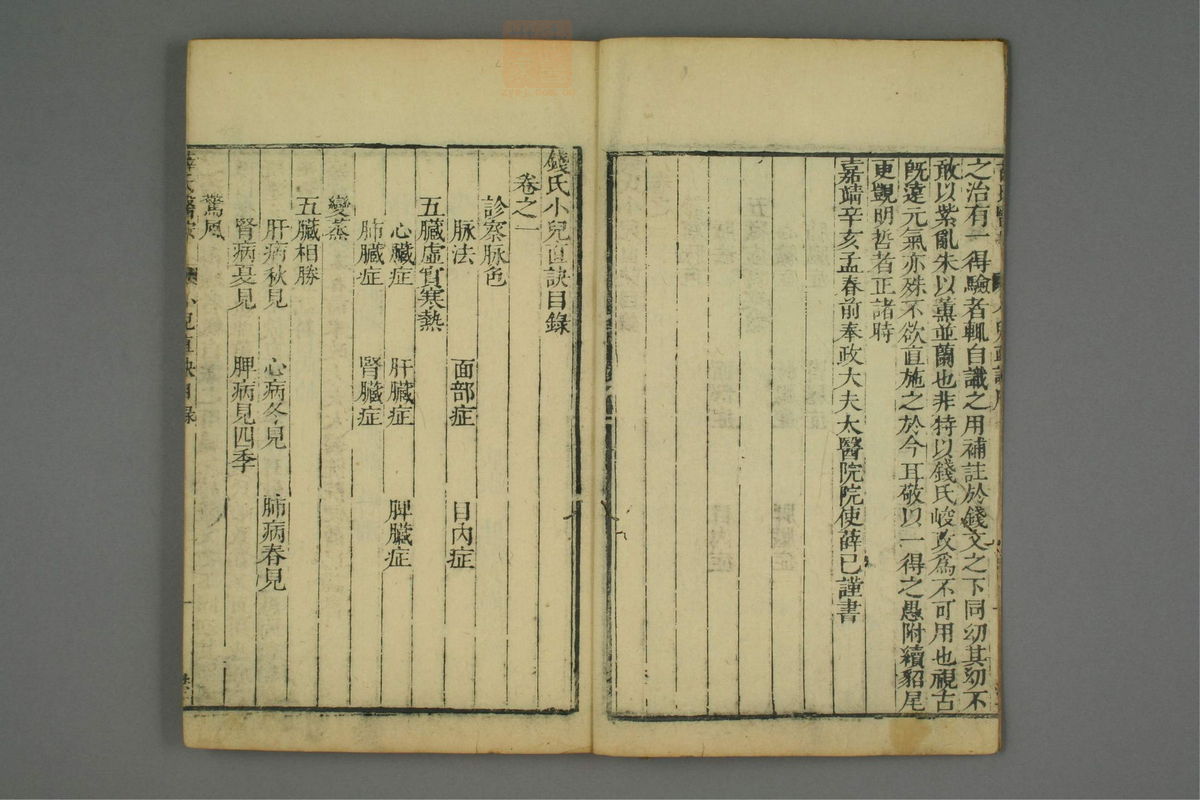 之治有一得驗者輒自識之用補註於錢文之下同幼其幼不
敢以紫亂朱以薰並蘭也非特以錢氏峻攻為不可用也視古
既遠元氣亦殊不欲直施之於今耳敬以一得之愚附續貂尾
更覬明哲者正諸時
嘉靖辛亥孟春前奉政大夫太醫院院使薛己謹書
錢氏小兒直訣目錄
卷之一
診察脉色
脉法 面部症 目內症
五臟虛實寒熱
心臟症 肝臟症 脾臟症
肺臟症 腎臟症
變蒸
五臟相勝
肝病秋見 心病冬見 肺病春見
腎病夏見 脾病見四季
驚風
小兒直訣目錄 一